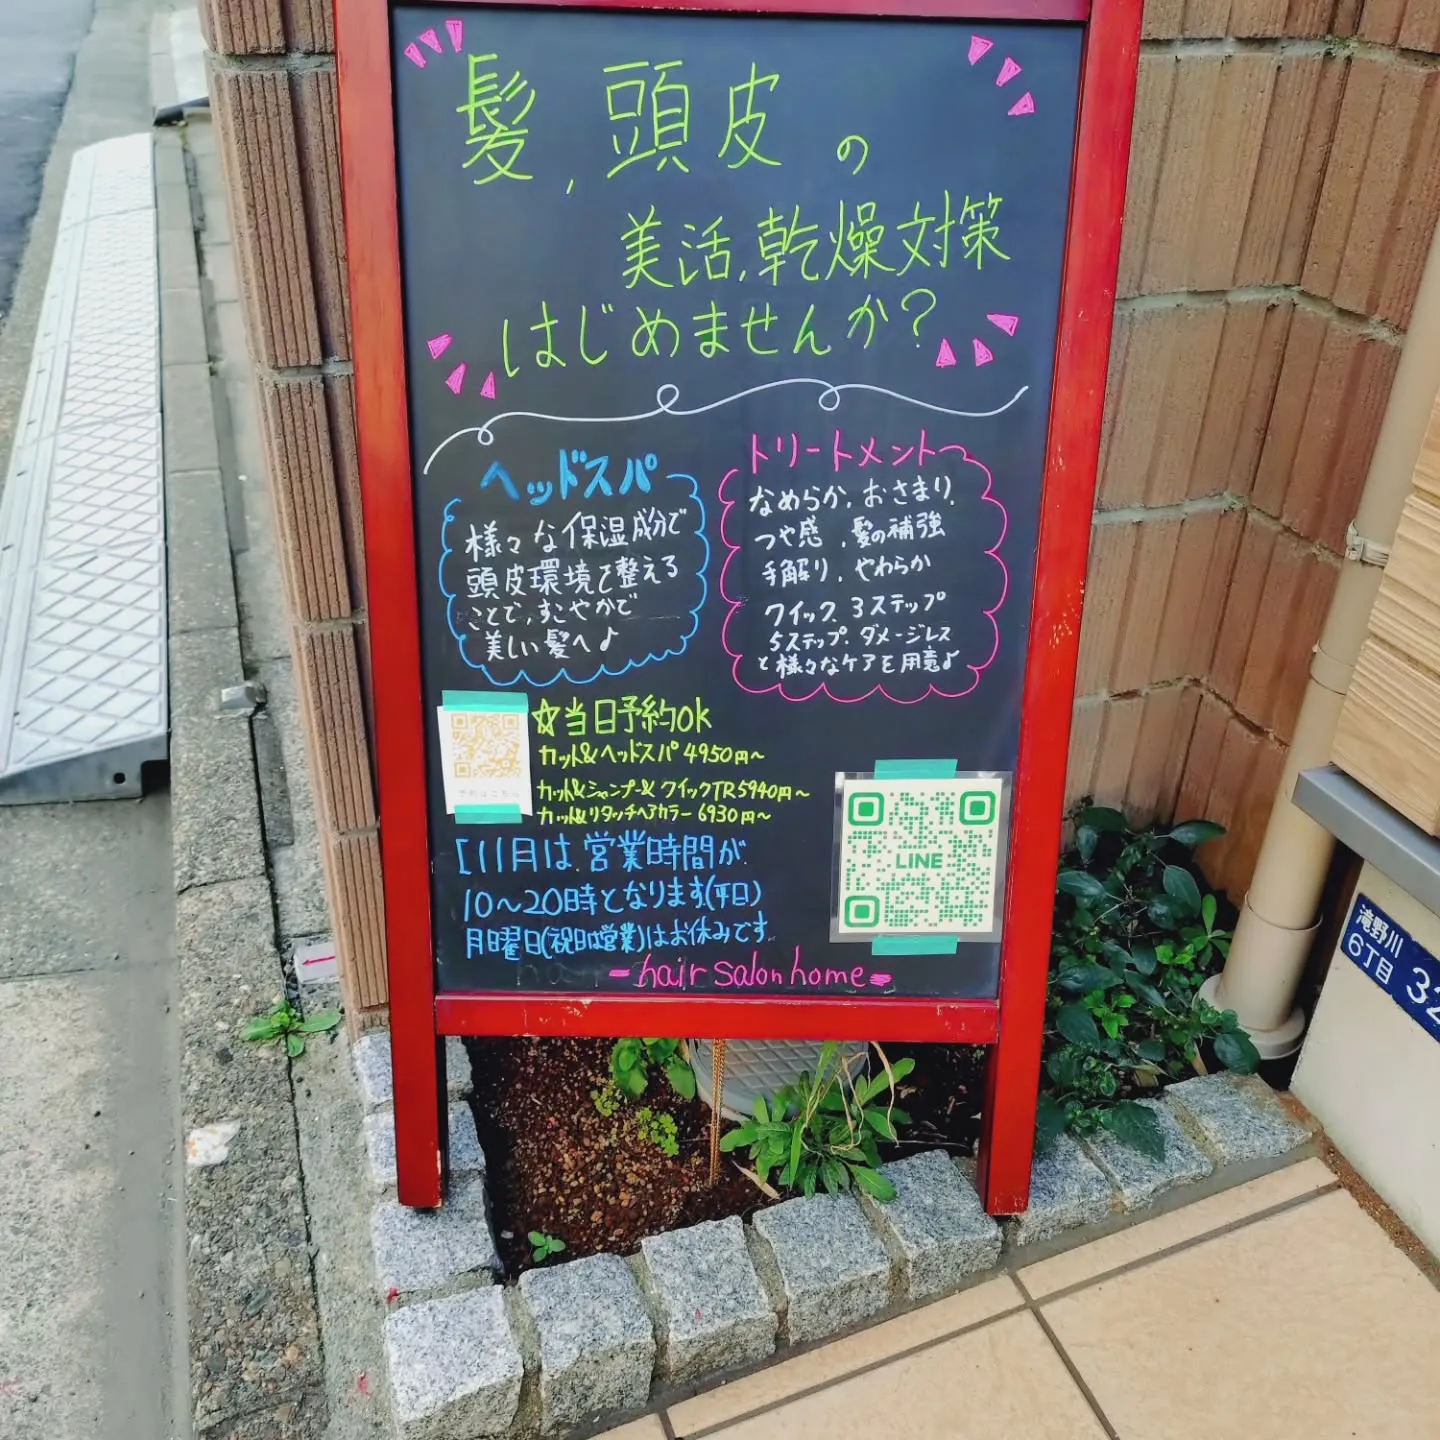 髪、頭皮の
美活、乾燥対策
はじめませんか？
ヘッドスパ
様々な保湿成分で
頭皮環境を整える
ことで、すこやかで
美しい髪へ♪
トリートメント
なめらか、おさまり、
つや感、髪の補強
手触り、やわらか
クイック、3ステップ
5ステップ、ダメージレス
と様々なケアを用意♪
☆当日予約OK
カット&ヘッドスパ 4950円〜
カット&シャンプー& クイックTR5940円〜
カット&リタッチヘアカラー 6930円〜
予約はこちら
LINE
[11月は、営業時間が
10〜20時となります(平日)
月曜日(祝日は営業)はお休みです
hair salon home
滝野川
6丁目
32